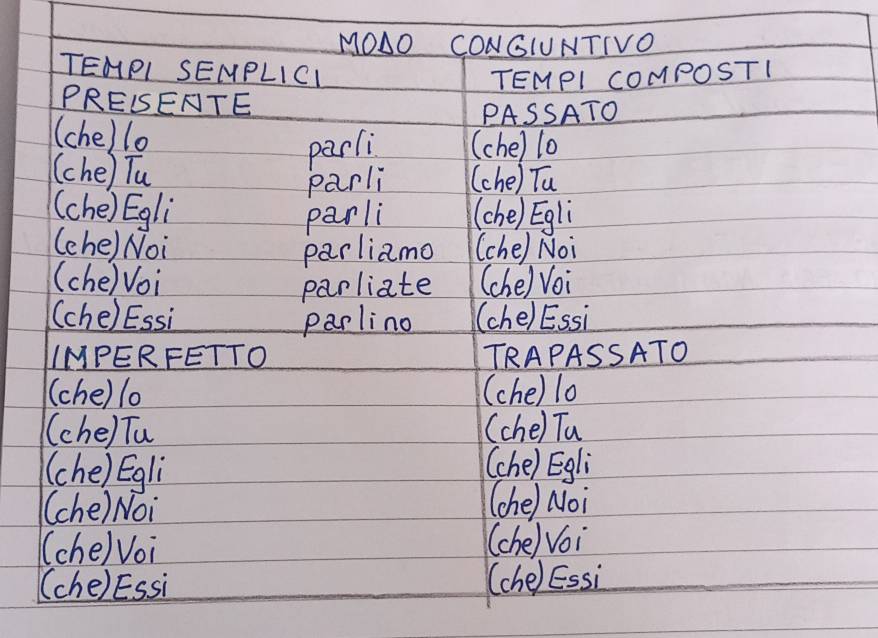 MODO CONGIUNTIVO
TEMPI SEMPLICI TEMPI COMPOSTI
PRESENTE PASSATO
(che) Io parli (che) Io
(che) Tu parli (che) Tu
(che) Egli parli (che) Egli
(che) Noi parliamo (che) Noi
(che) Voi parliate (che) Voi
(che) Essi parlino (che) Essi
IMPERFETTO TRAPASSATO
(che) Io (che) Io
(che) Tu (che) Tu
(che) Egli (che) Egli
(che) Noi (che) Noi
(che) Voi (che) Voi
(che) Essi (che) Essi